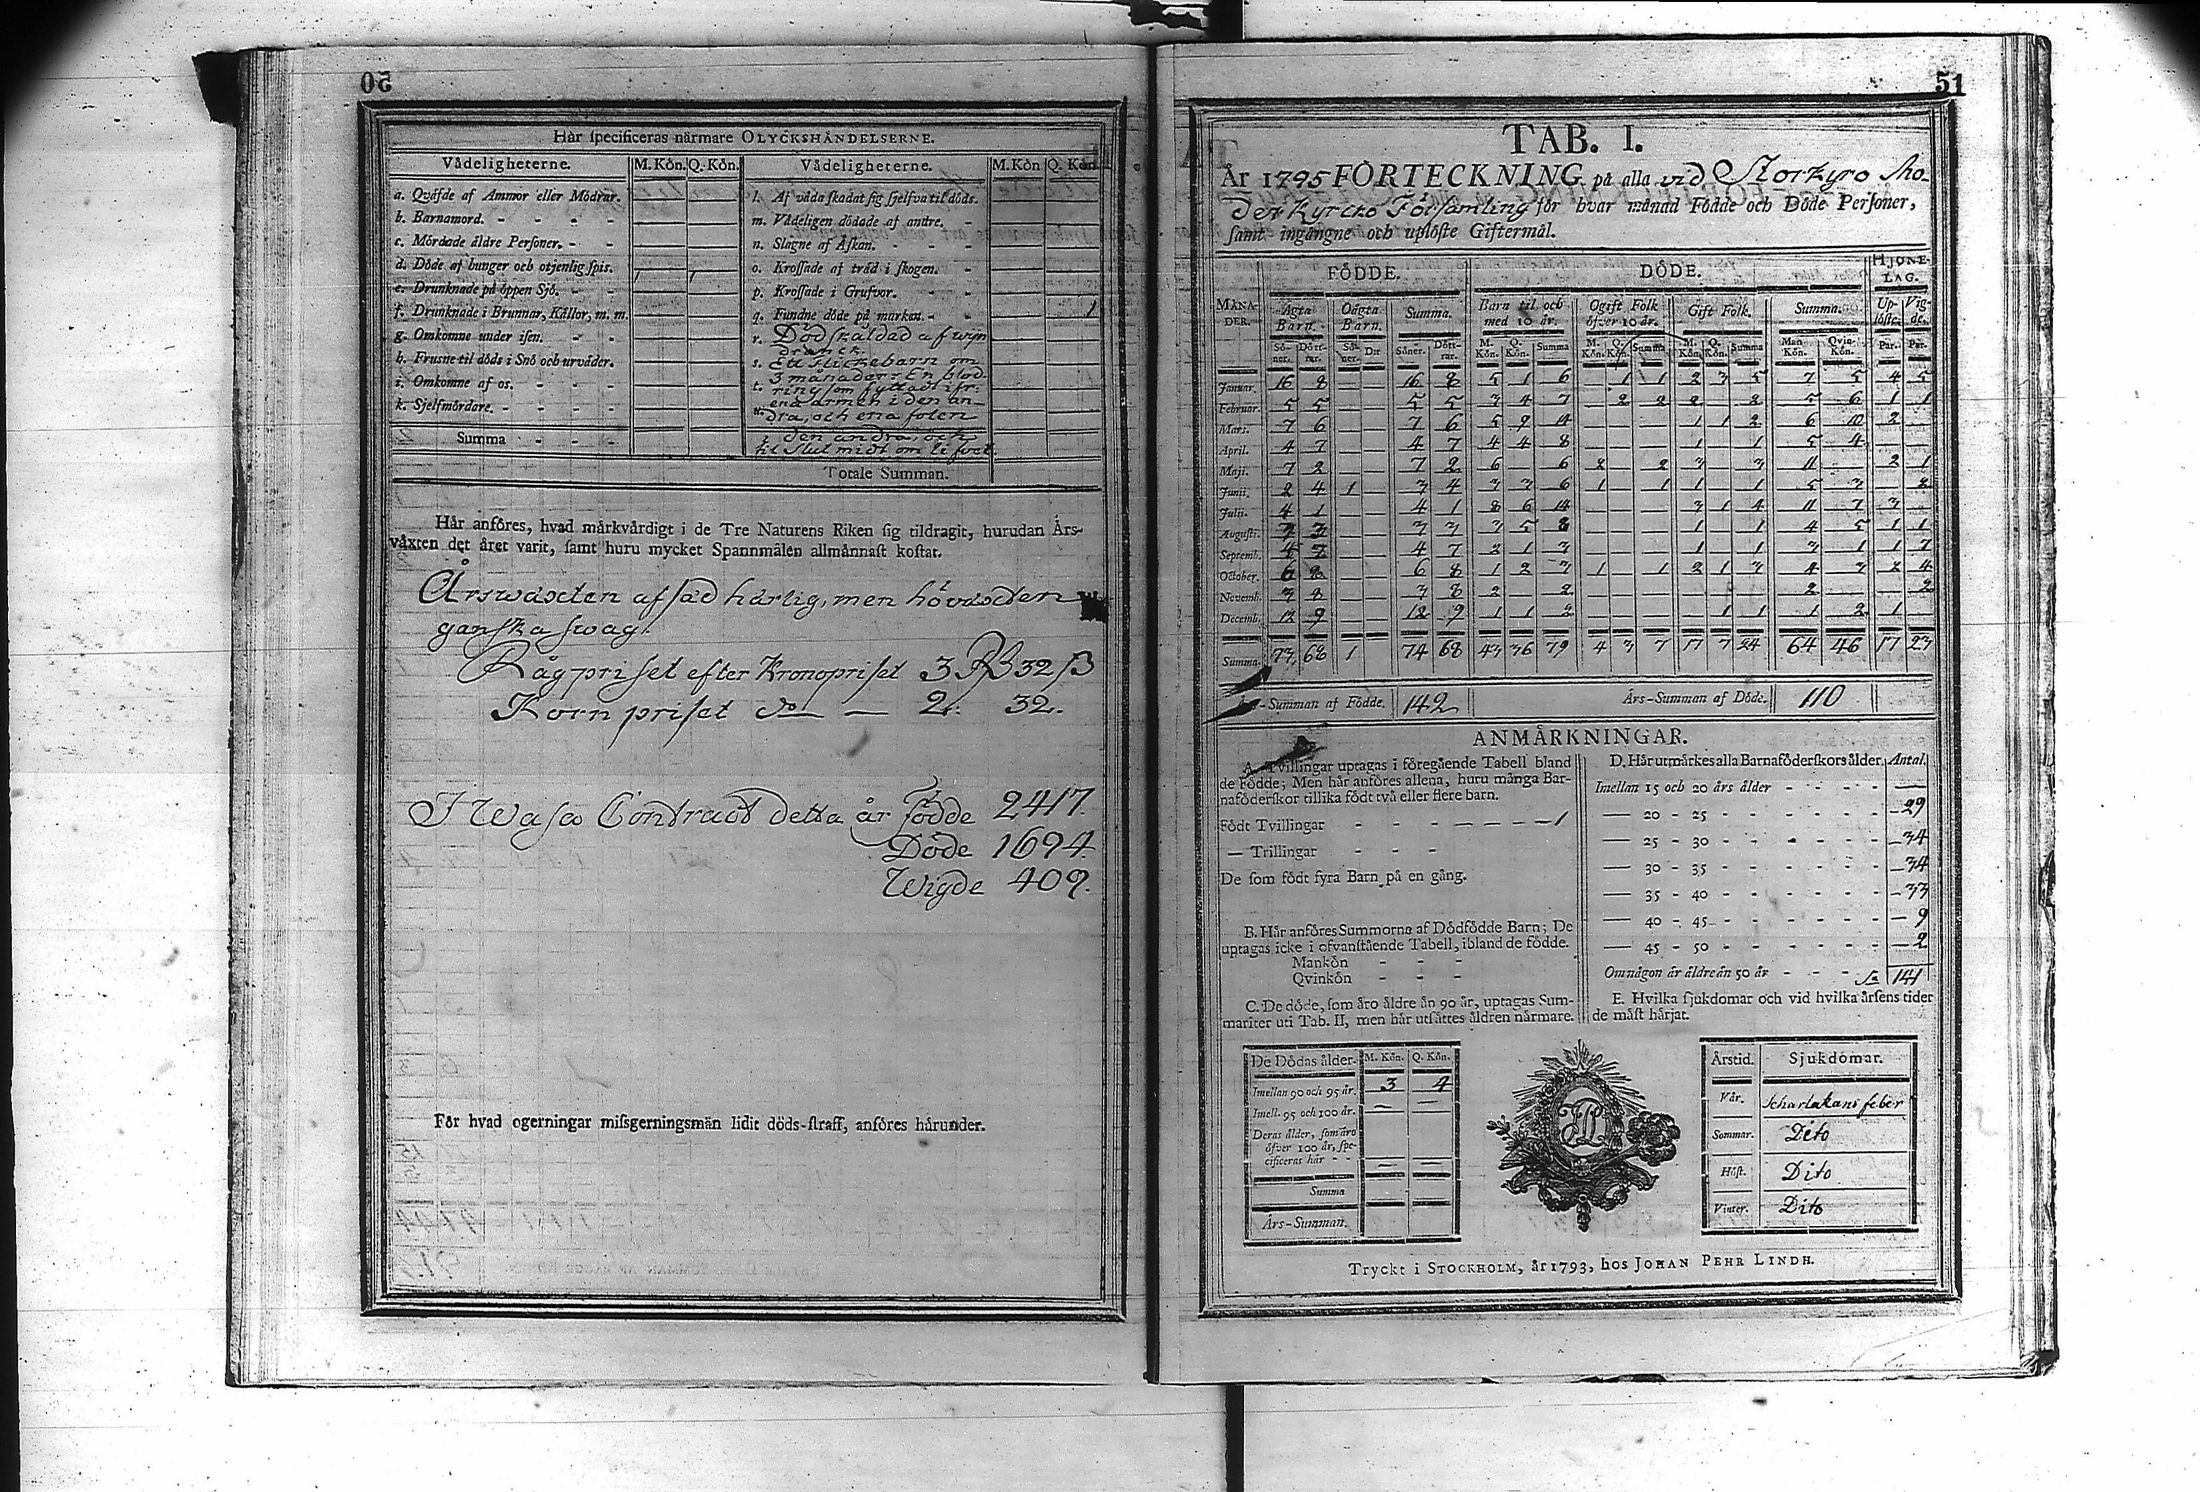 50
Hår specificeras närmare OLYCKSHÅNDELSERNE.
Vådeligheterne. M. Kön. Q. Kön. Vådeligheterne. M. Kön Q. Kön.
a. Qväfde af Ammor eller Mödrar. l. Af våda skadat sig sjelfva til döds.
b. Barnamord. - - - - m. Vådeligen dödade af andre.
c. Mördade äldre Personer. - - n. Slagne af Åskan. - - -
d. Döde af hunger och otjenlig spis. 1 1 o. Krossade af träd i skogen. -
e. Drunknade på öppen Sjö. - - p. Krossade i Grufvor. - -
f. Drunknade i Brunnar, Källor, m. m. q. Fundne döde på marken. - - 1
g. Omkomne under isen. - - r. Död skåldad af wijn
dranck
h. Frusne til döds i Snö och urväder. s. Ett flickebarn om
3 månader
i. Omkomne af os. - - - - t.
ena armen i den an-
k. Sjelfmördare. - - - - u. dra, och ena foten
Summa - - - den andra, och
til slut midt om lifvet
Totale Summan.
Hår anföres, hvad märkvärdigt i de Tre Naturens Riken sig tildragit, hurudan Års-
växten det året varit, samt huru mycket Spannmålen allmännast kostat.
Årswäxten af säd härlig, men höväxten
ganska swag.
Rågpriset efter Kronopriset 3 Rß 32 ß
Korn priset do — 2: 32.
I Wasa Contract detta år Födde 2417.
Döde 1694.
Wigde 409.
För hvad ogerningar missgerningsmän lidit döds-straff, anföres härunder.
51
TAB. I.
År 1795 FÖRTECKNING på alla vid Storkyro Mo-
der kyrcko Församling för hvar månad Födde och Döde Personer,
samt ingångne och uplöste Giftermål.
MÅNA-DER. FÖDDE. DÖDE. HJONE-LAG.
Ägta Barn. Oägta Barn. Summa. Barn til och med 10 år. Ogift Folk öfver 10 år. Gift Folk. Summa. Up-löste. Vig-de.
Sö-ner. Dött-rar. Sö-ner. Dtr Söner. Dött-rar. M. Kön. Q. Kön. Summa M. Kön. Q. Kön. Summa M. Kön. Q. Kön. Summa Man Kön. Qvin-Kön. Par. Par.
Januar. 16 8 — — 16 8 5 1 6 — 1 1 2 3 5 7 5 4 5
Februar. 5 5 — — 5 5 3 4 7 — 2 2 2 — 2 5 6 1 1
Mars. 7 6 — — 7 6 5 9 14 — — — 1 1 2 6 10 2 —
April. 4 7 — — 4 7 4 4 8 — — — 1 — 1 5 4 — —
Maji. 7 2 — — 7 2 6 — 6 2 — 2 3 — 3 11 — 2 1
Junii. 2 4 1 — 3 4 3 3 6 1 — 1 1 — 1 5 3 — 2
Julii. 4 1 — — 4 1 8 6 14 — — — 3 1 4 11 7 3 —
Augusti. 3 3 — — 3 3 3 5 8 — — — 1 — 1 4 5 1 1
Septemb. 4 7 — — 4 7 2 1 3 — — — 1 — 1 3 1 1 7
October. 6 8 — — 6 8 1 2 3 1 — 1 2 1 3 4 3 2 4
Novemb. 3 8 — — 3 8 2 — 2 — — — — — — 2 — — 2
Decemb. 12 9 — — 12 9 1 1 2 — — — — 1 1 1 2 1 —
Summa. 73 68 1 74 68 43 36 79 4 3 7 17 7 24 64 46 17 23
-Summan af Födde. 142 Års-Summan af Döde. 110
ANMÄRKNINGAR.
A. Tvillingar uptagas i föregående Tabell bland
de Födde; Men här anföres allena, huru många Bar-
naföderskor tillika födt två eller flere barn.
Födt Tvillingar - - - — — — — 1
— Trillingar - - -
De som födt fyra Barn på en gång.
B. Här anföres Summorna af Dödfödde Barn; De
uptagas icke i ofvanstående Tabell, ibland de födde.
Mankön - - -
Qvinkön - - -
C. De döde, som äro äldre än 90 år, uptagas Sum-
mariter uti Tab. II, men här utsättes åldren närmare.
D. Här utmärkes alla Barnaföderskors ålder. Antal.
Imellan 15 och 20 års ålder - - - - - —
— 20 - 25 - - - - - - 29
— 25 - 30 - - - - - - 34
— 30 - 35 - - - - - - 34
— 35 - 40 - - - - - - 33
— 40 - 45 - - - - - - 9
— 45 - 50 - - - - - - 2
Om någon är äldre än 50 år - - - Sa 141
E. Hvilka sjukdomar och vid hvilka årsens tider
de måst härjat.
De Dödas ålder. M. Kön. Q. Kön.
Imellan 90 och 95 år. 3 4
Imell. 95 och 100 år. — —
Deras ålder, som äro
öfver 100 år, spe-
cificeras här - - — —
Summa
Års-Summan.
Årstid. Sjukdomar.
Vår. Scharlakans feber
Sommar. Dito
Höst. Dito
Vinter. Dito
Tryckt i STOCKHOLM, år 1793, hos JOHAN PEHR LINDH.